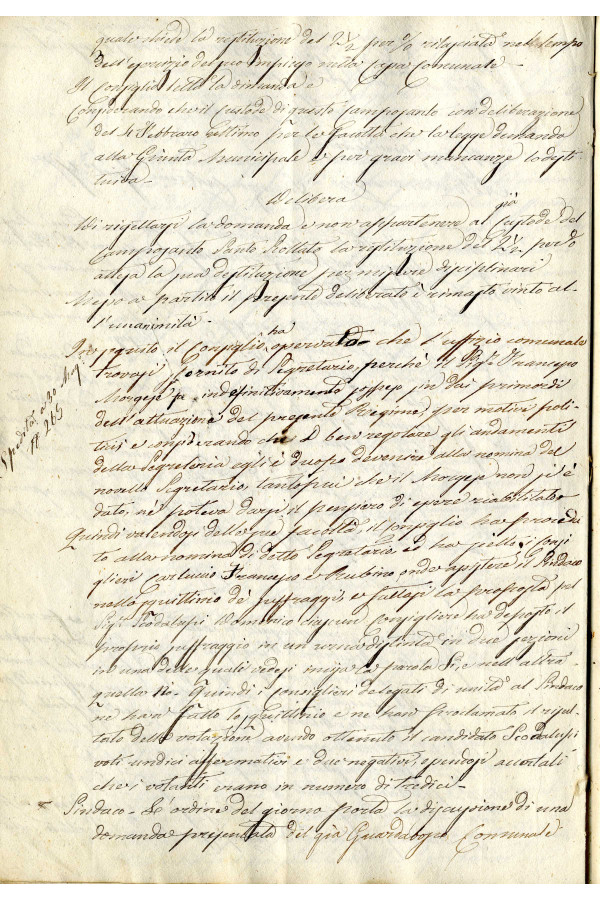 quale chiede la restituzione del 2 1/2 per % rilasciata nel tempo
dell'esercizio del suo impiego nella Cassa Comunale -
Il Consiglio letta la dimanda e
Considerando che il custode di questo Camposanto con deliberazione
del 4 Febbraro ultimo per le facoltà che la legge demanda
alla Giunta Municipale e per gravi mancanze lo desti-
tuiva -
Delibera
Di rigettarsi la domanda e non appartenere al già Custode del
Camposanto la restituzione del 2 1/2 per %
attesa la sua destituzione per misure disciplinari
Messo a partito il presente deliberato è rimasto vinto al-
l'unanimità -
In seguito il Consiglio ha osservato che l'uffizio comunale
trovasi fornito di Segretario, perchè il Sig.r Francesco
Morgese fu indefinitivamente sospeso sin dai primordi
dell'attuazione del presente Regime, per motivi poli-
tici e considerando che a ben regolare gli andamenti
della Segreteria egli è duopo devenire alla nomina del
novello Segretario, tanto più che il Morgese non si è
dato, nè poteva darsi il pensiero di essere riabilitato
Quindi valendosi delle sue facoltà, il Consiglio ha procedu-
to alla nomina di detto Segretario ed ha scelto i Consi-
glieri Carlucci Francesco e Rubino onde assistere il Sindaco
nello squittinio de' suffragi, e fattasi la proposta pel
Sig.r Scodalupi Domenico ciascun Consigliere ha deposto il
proprio suffragio in un urna distinta in due sezioni
in una delle quali vedesi incisa la parola Si, e nell'altra
quella No - Quindi i consiglieri delegati di unità al Sindaco
ne han fatto lo squittinio e ne han proclamato il risul-
tato della votazione avendo ottenuto il candidato Scodalupi
voti undici affermativi e due negativi, essendosi accertati
che i votanti erano in numero di tredici -
Sindaco - L'ordine del giorno porta la discussione di una
domanda presentata dal già Guardabosco Comunale
Spedita a 30 Mag.
N° 265